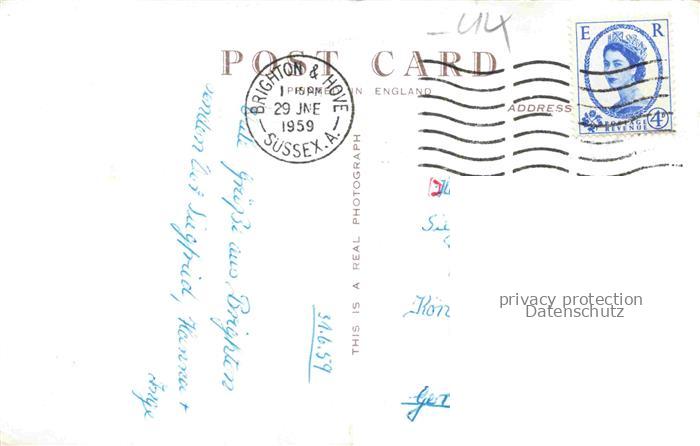 UK
POST CARD
PRINTED IN ENGLAND
ADDRESS
BRIGHTON & HOVE
1 15 PM
29 JNE
1959
SUSSEX. A.
E R
POSTAGE
REVENUE
4D
THIS IS A REAL PHOTOGRAPH
Grüße aus Brighton
senden Siegfried, Hanna +
Inge
Kön
Ger
privacy protection
Datenschutz